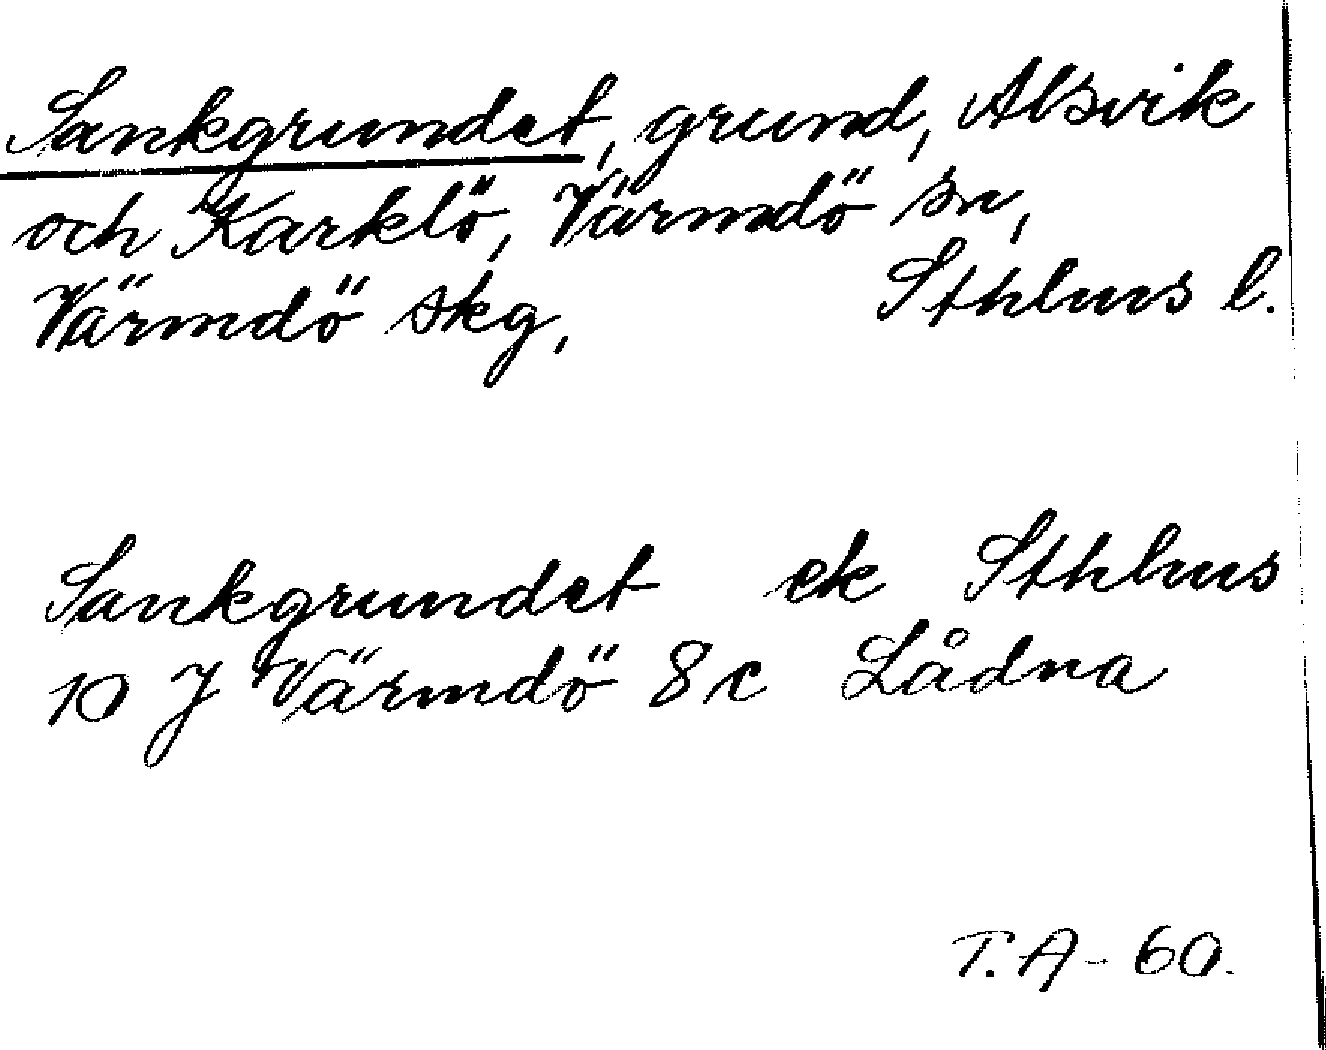 Sankgrundet, grund, Alsvik
och Karklö, Värmdö sn,
Värmdö skg, Sthlms l.
Sankgrundet ek Sthlms
10 J Värmdö 8c Lådna
T.A-60.